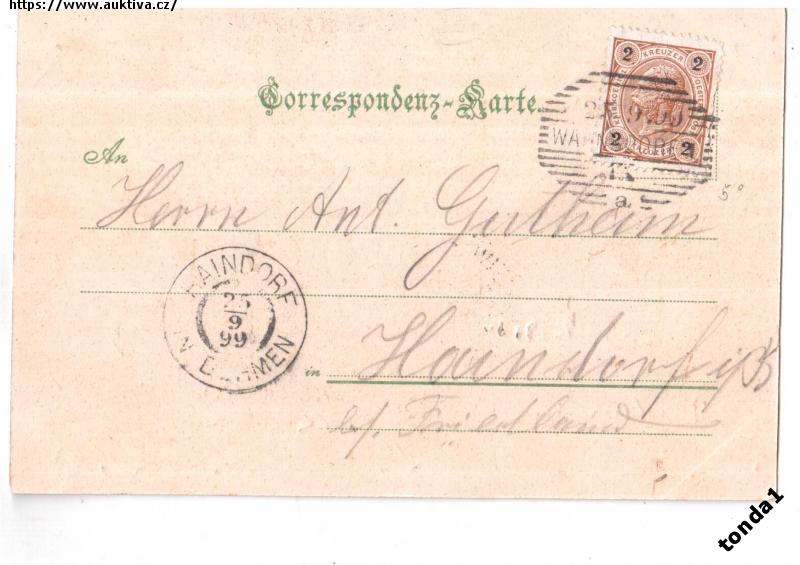 https://www.auktiva.cz/
2 KREUZER 2
2 2
Correspondenz-Karte.
9.99
WARNSDORF
a
An
5°
Herrn Ant.
HAINDORF
25
9
99
IN BÖHMEN
in Haindorf i/B
b/. Friedland
tonda1